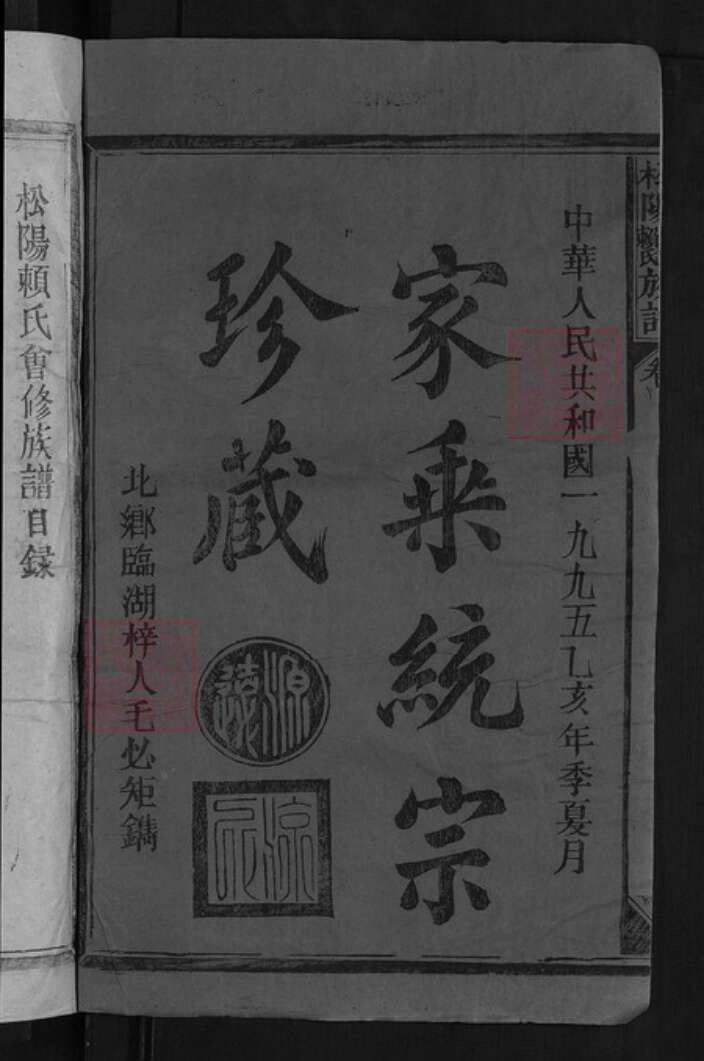 松陽賴氏族譜
中華人民共和國一九九五乙亥年季夏月
家乘統宗
珍藏
北鄉臨湖梓人毛必矩鐫
松陽賴氏會修族譜目錄